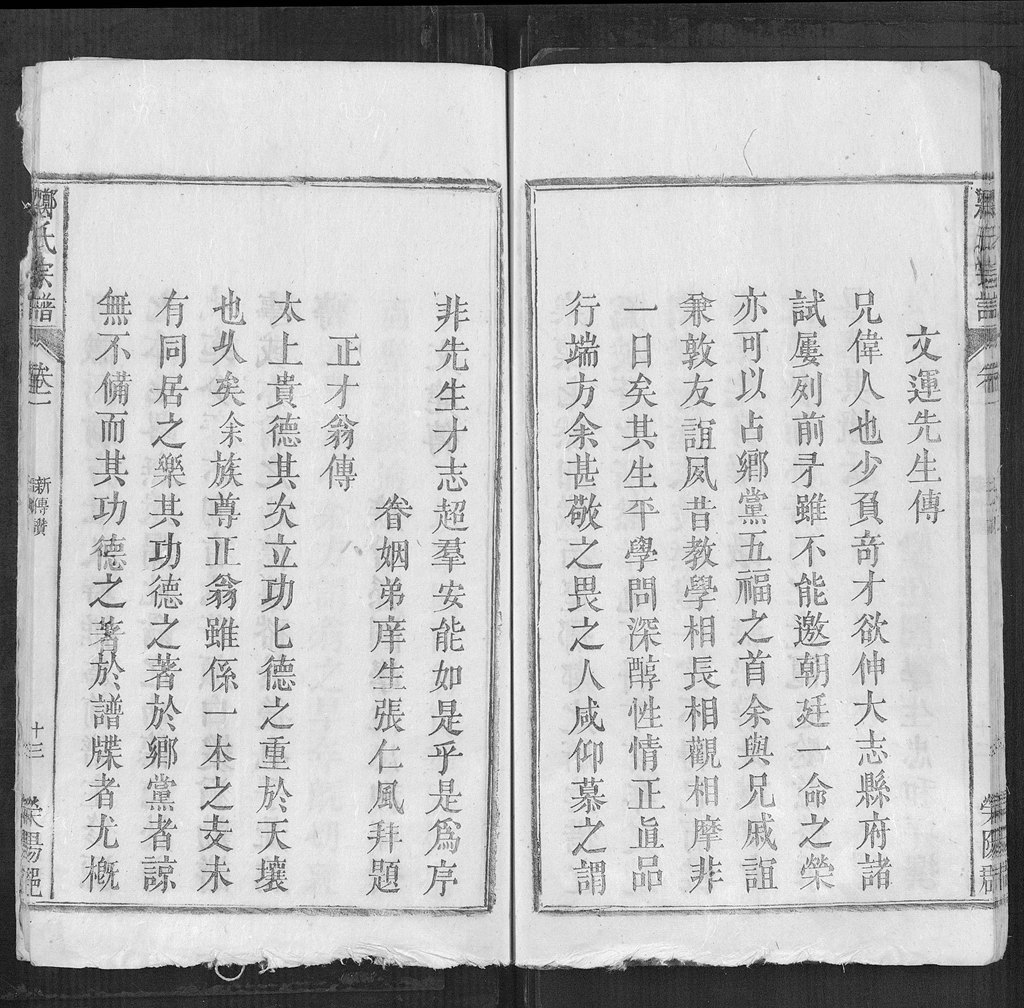 文運先生傳
兄偉人也少負奇才欲伸大志縣府諸
試屢列前矛雖不能邀朝廷一命之榮
亦可以占鄉黨五福之首余與兄戚誼
兼敦友誼夙昔教學相長相觀相摩非
一日矣其生平學問深醇性情正眞品
行端方余甚敬之畏之人咸仰慕之謂
非先生才志超羣安能如是乎是爲序
眷姻弟庠生張仁風拜題
正才翁傳
太上貴德其次立功匕德之重於天壤
也乆矣余族尊正翁雖係一本之支未
有同居之樂其功德之著於鄉黨者諒
無不備而其功德之著於譜牒者尤概
鄭氏宗譜
卷二
新傳讚
十三
滎陽